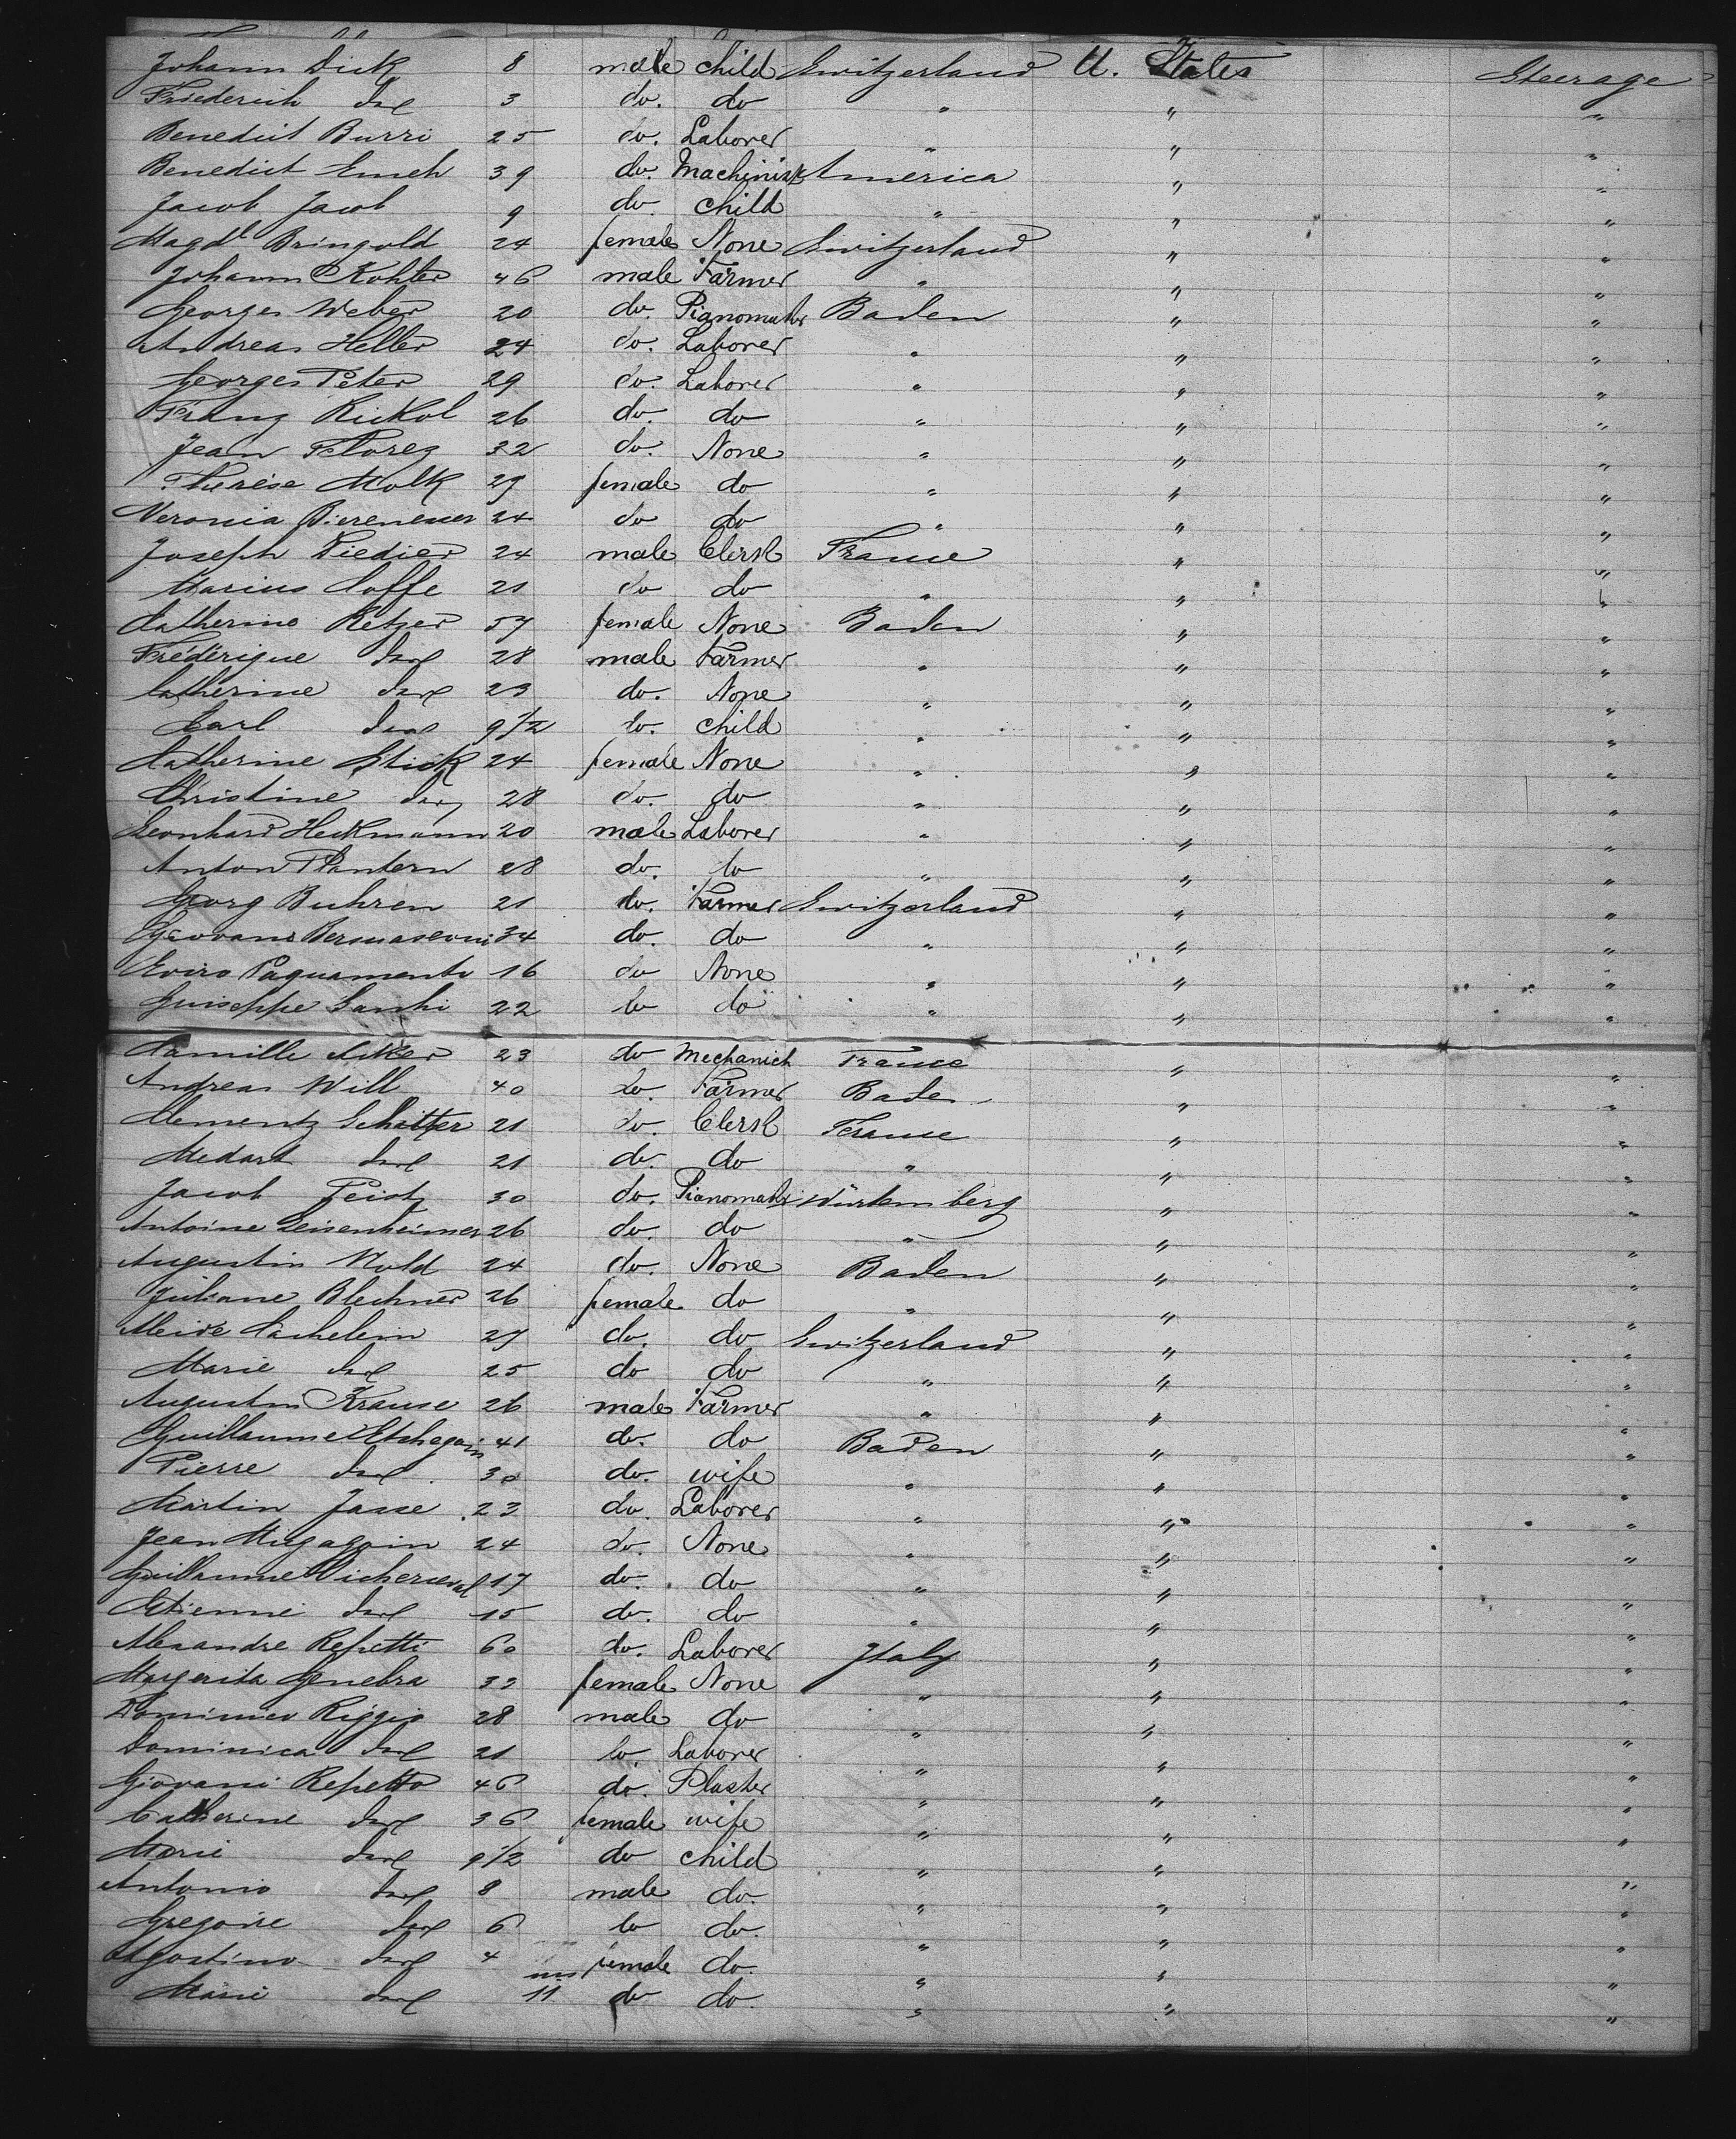 Johann Dick 8 male child Switzerland U. States Steerage
Friederich do 3 do. do " " "
Benedict Burri 25 do. Laborer " " "
Benedict Emch 39 do. Machinist America " "
Jacob Jacob 9 do. child " " "
Magdl Bringold 24 female None Switzerland " "
Johann Kohler 46 male Farmer " " "
Georges Weber 20 do. Pianomaker Baden " "
Andreas Heller 24 do. Laborer " " "
Georges Peter 29 do. Laborer " " "
Franz Rickol 26 do. do " " "
Jean Florez 32 do. None " " "
Therèse Molk 29 female do " " "
Veronia 24 do do " " "
Joseph Diedier 24 male Clerk France " "
Marius Caffe 21 do do " " "
Catherine Retzer 57 female None Baden " "
Frédérique do 28 male Farmer " " "
Catherine do 23 do. None " " "
Carl do 9 1/2 do. child " " "
Catherine Stick 24 female None " " "
Christine do 28 do. do " " "
Leonhard Heckmann 20 male Laborer " " "
Anton Plantern 28 do. do " " "
Georg Buhren 21 do. Farmer Switzerland " "
Geovani 34 do. do " " "
16 do None " " "
Guiseppe 22 do do " " "
Camille Acker 23 do Mechanick France " "
Andreas Will 40 do. Farmer Baden " "
Clementz Schitter 21 do. Clerk France " "
Medart do 21 do. do " " "
Jacob Feist 30 do. Pianomaker Würtemberg " "
Antoine Leisenheimer 26 do. do " " "
Augustin Nold 24 do. None Baden " "
Juliane Blechner 26 female do " " "
27 do. do Switzerland " "
Marie do 25 do do " " "
Augustin Krause 26 male Farmer " " "
Guillaume Etchegoin 41 do. do Baden " "
Pierre do 30 do. wife " " "
Martin Jasse 23 do. Laborer " " "
Jean 24 do. None " " "
Guillaume 17 do. do " " "
Etienne do 15 do. do " " "
Alexandre Repetti 60 do. Laborer Italy " "
Margerita Genebra 33 female None " " "
Dominico Riggio 28 male do " " "
Dominica do 21 do. Laborer " " "
Giovani Repetto 46 do. Plaster " " "
Catherine do 36 female wife " " "
Marie do 9 1/2 do child " " "
Antonio do 8 male do. " " "
Gregoire do 6 do do. " " "
Agostino do 4 female do. " " "
Marie do ms 11 do do. " " "